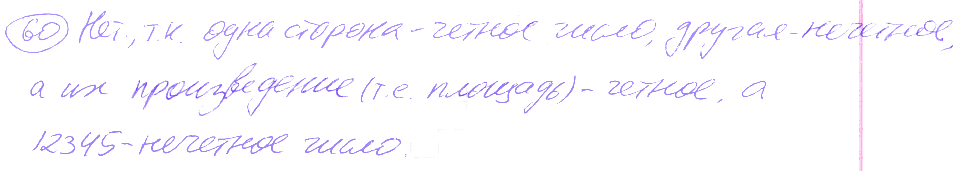 60 Нет, т.к. одна сторона - четное число, другая - нечетное,
а их произведение (т.е. площадь) - четное, а
12345 - нечетное число.